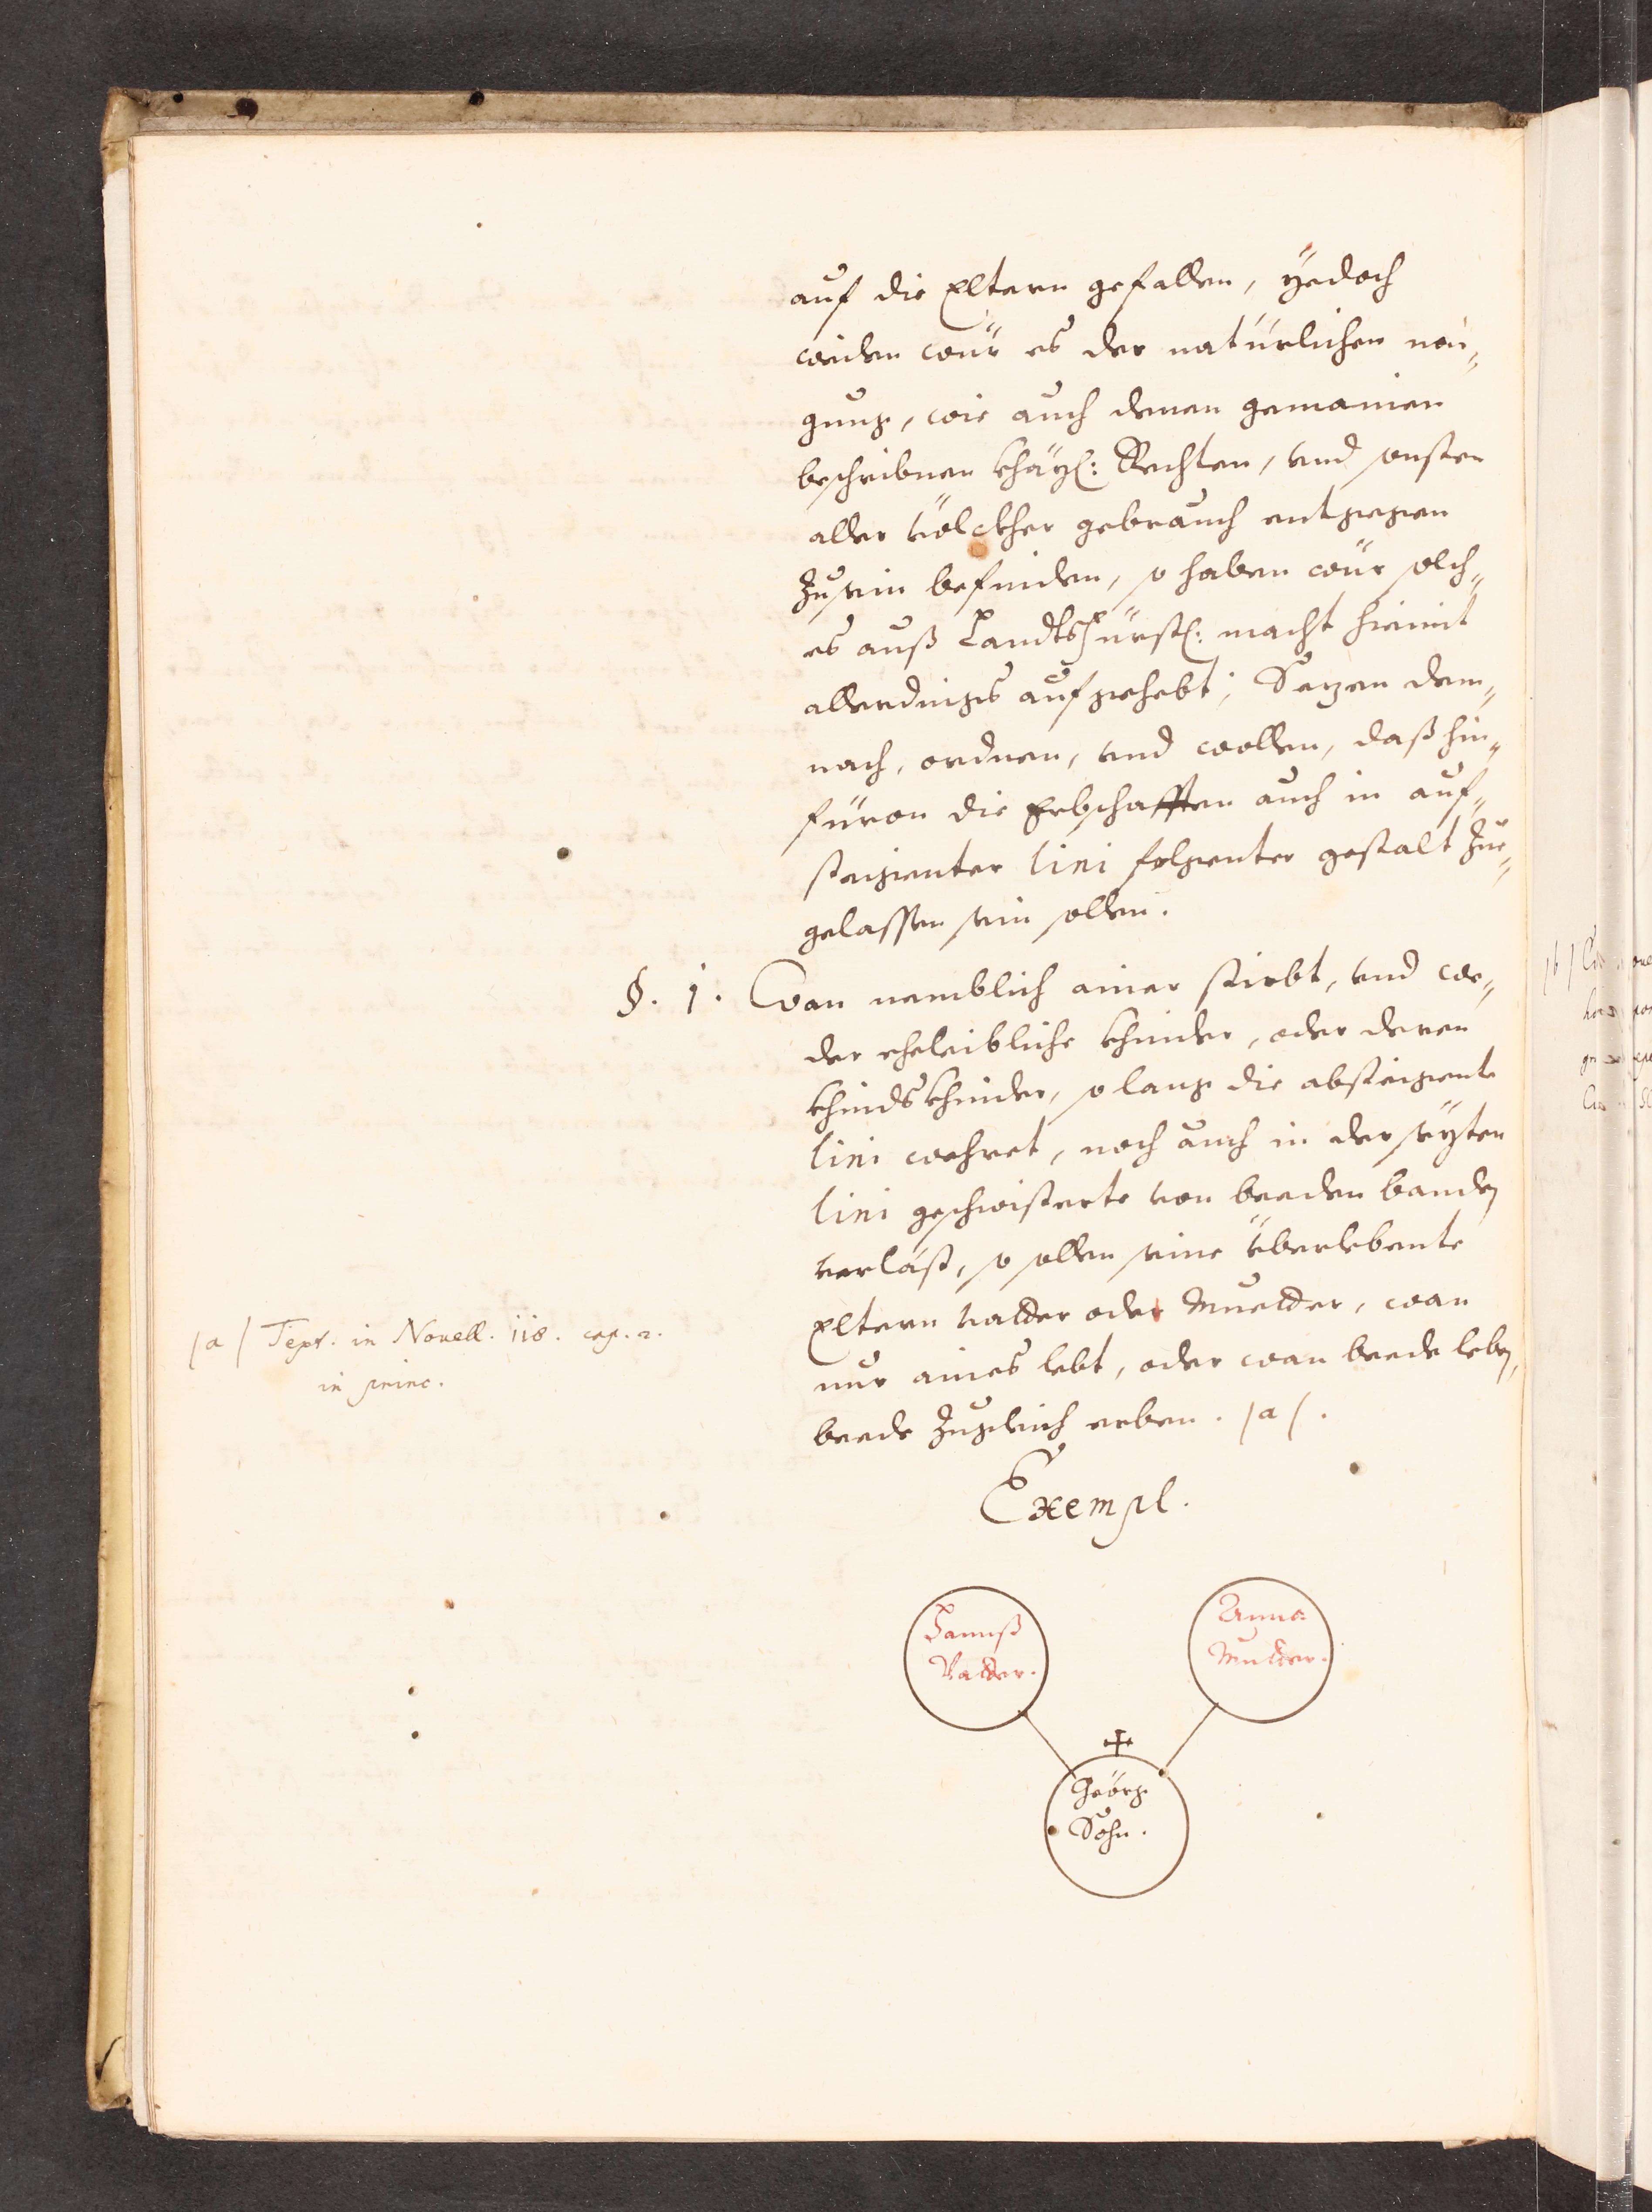 auf die Eltern gefallen, yedoch
weilen wür es der natürlichen nai„
gung, wie auch denen gemainen
beschribnen Khayl: Rechten, und sonsten
aller völckher gebrauch entgegen
zu sein befinden, so haben wür solch„
es auß Landtsfürstl: macht hiemit
allerdings aufgehebt; Sezen dem„
nach, ordnen, und wollen, daß hin„
füron die Erbschafften auch in auf„
steigenter lini folgenter gestalt Zue„
gelassen sein sollen.
§. 1. Wan nemblich ainer stirbt, und we„
der eheleibliche Khinder, oder deren
Khindskhinder, so lang die absteigente
lini wehret, noch auch in der seyten
lini geschwisterte von beeden banden
verläst, so sollen seine überlebente
Eltern vatter oder Muetter, wan
nur aines lebt, oder wan beede leben,
beede Zugleich erben. /a/.
/a/ Text. in Novell. 118. cap. 2.
in princ.
Exempl.
Hannß
Vatter.
Anna
Mutter.
Geörg
Sohn.